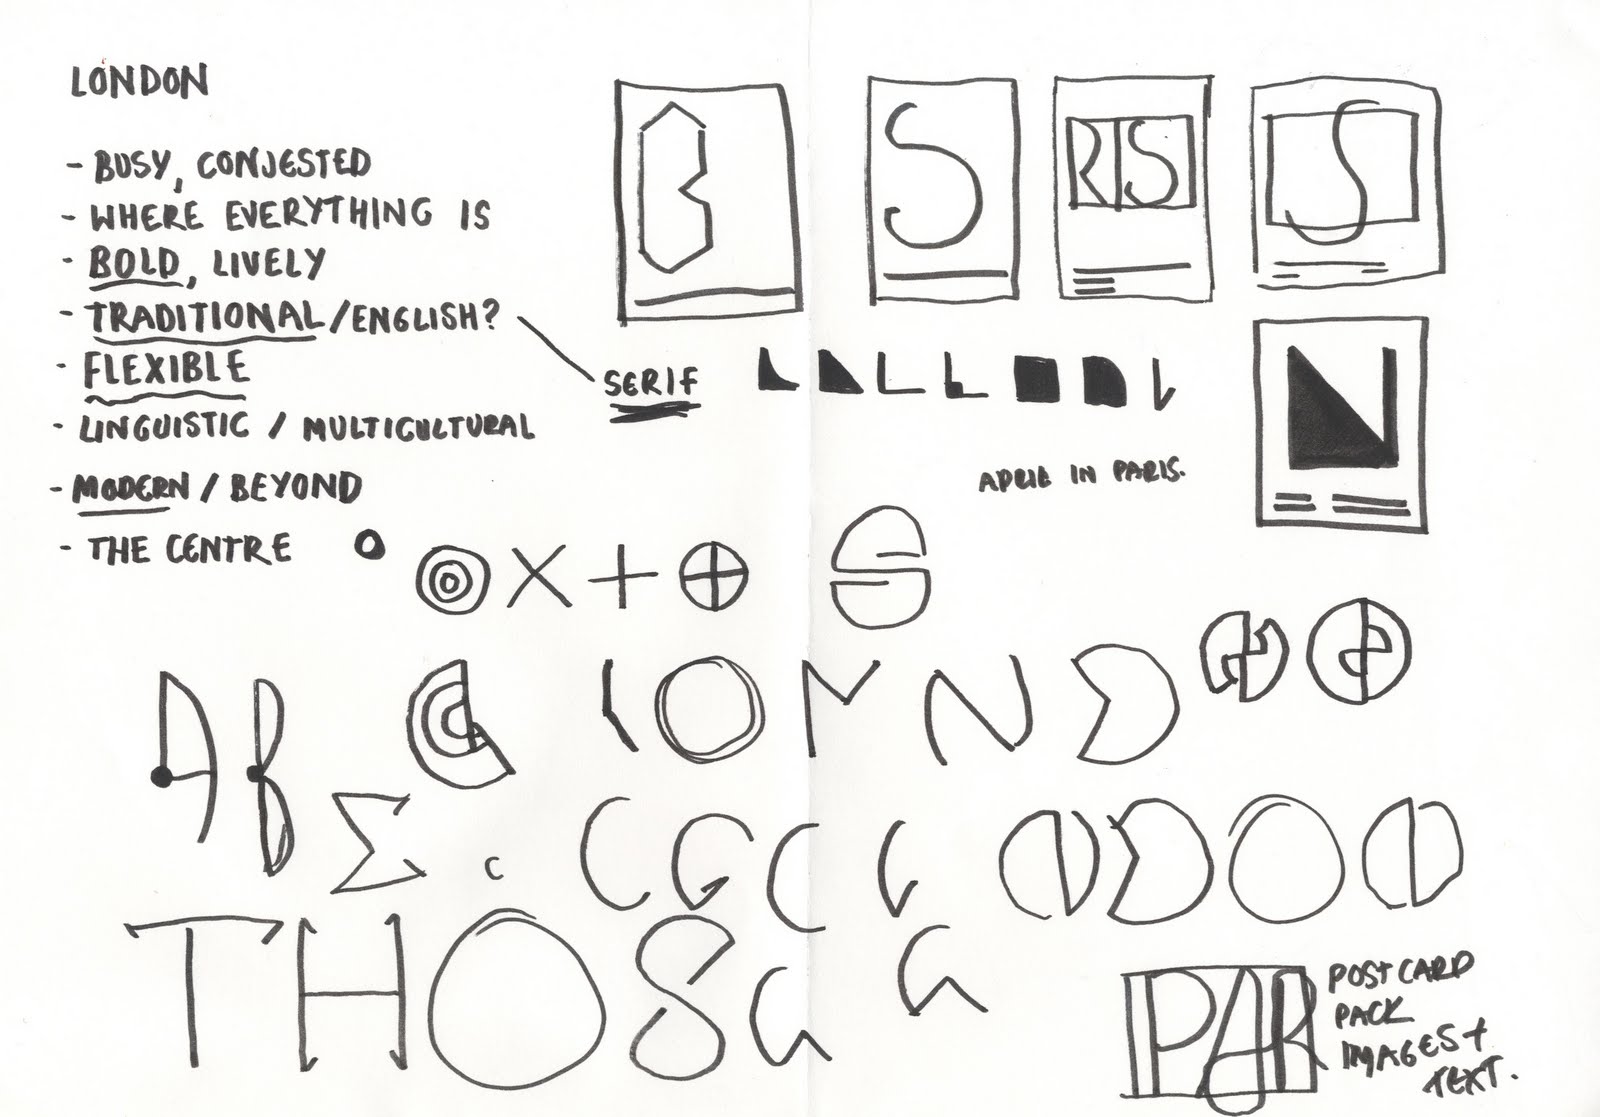 LONDON
- BUSY, CONJESTED
- WHERE EVERYTHING IS
- BOLD, LIVELY
- TRADITIONAL/ENGLISH?
SERIF
- FLEXIBLE
- LINGUISTIC / MULTICULTURAL
- MODERN / BEYOND
- THE CENTRE
B
S
RIS
S
N
IN PARIS.
S
A B
C
M N
Σ.
C
C G C G
T H O S G
G
PAR
POSTCARD
PACK
IMAGES +
TEXT.